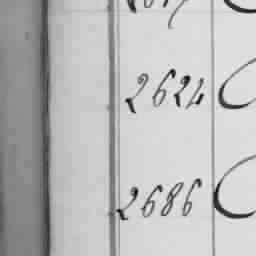 2624
2686